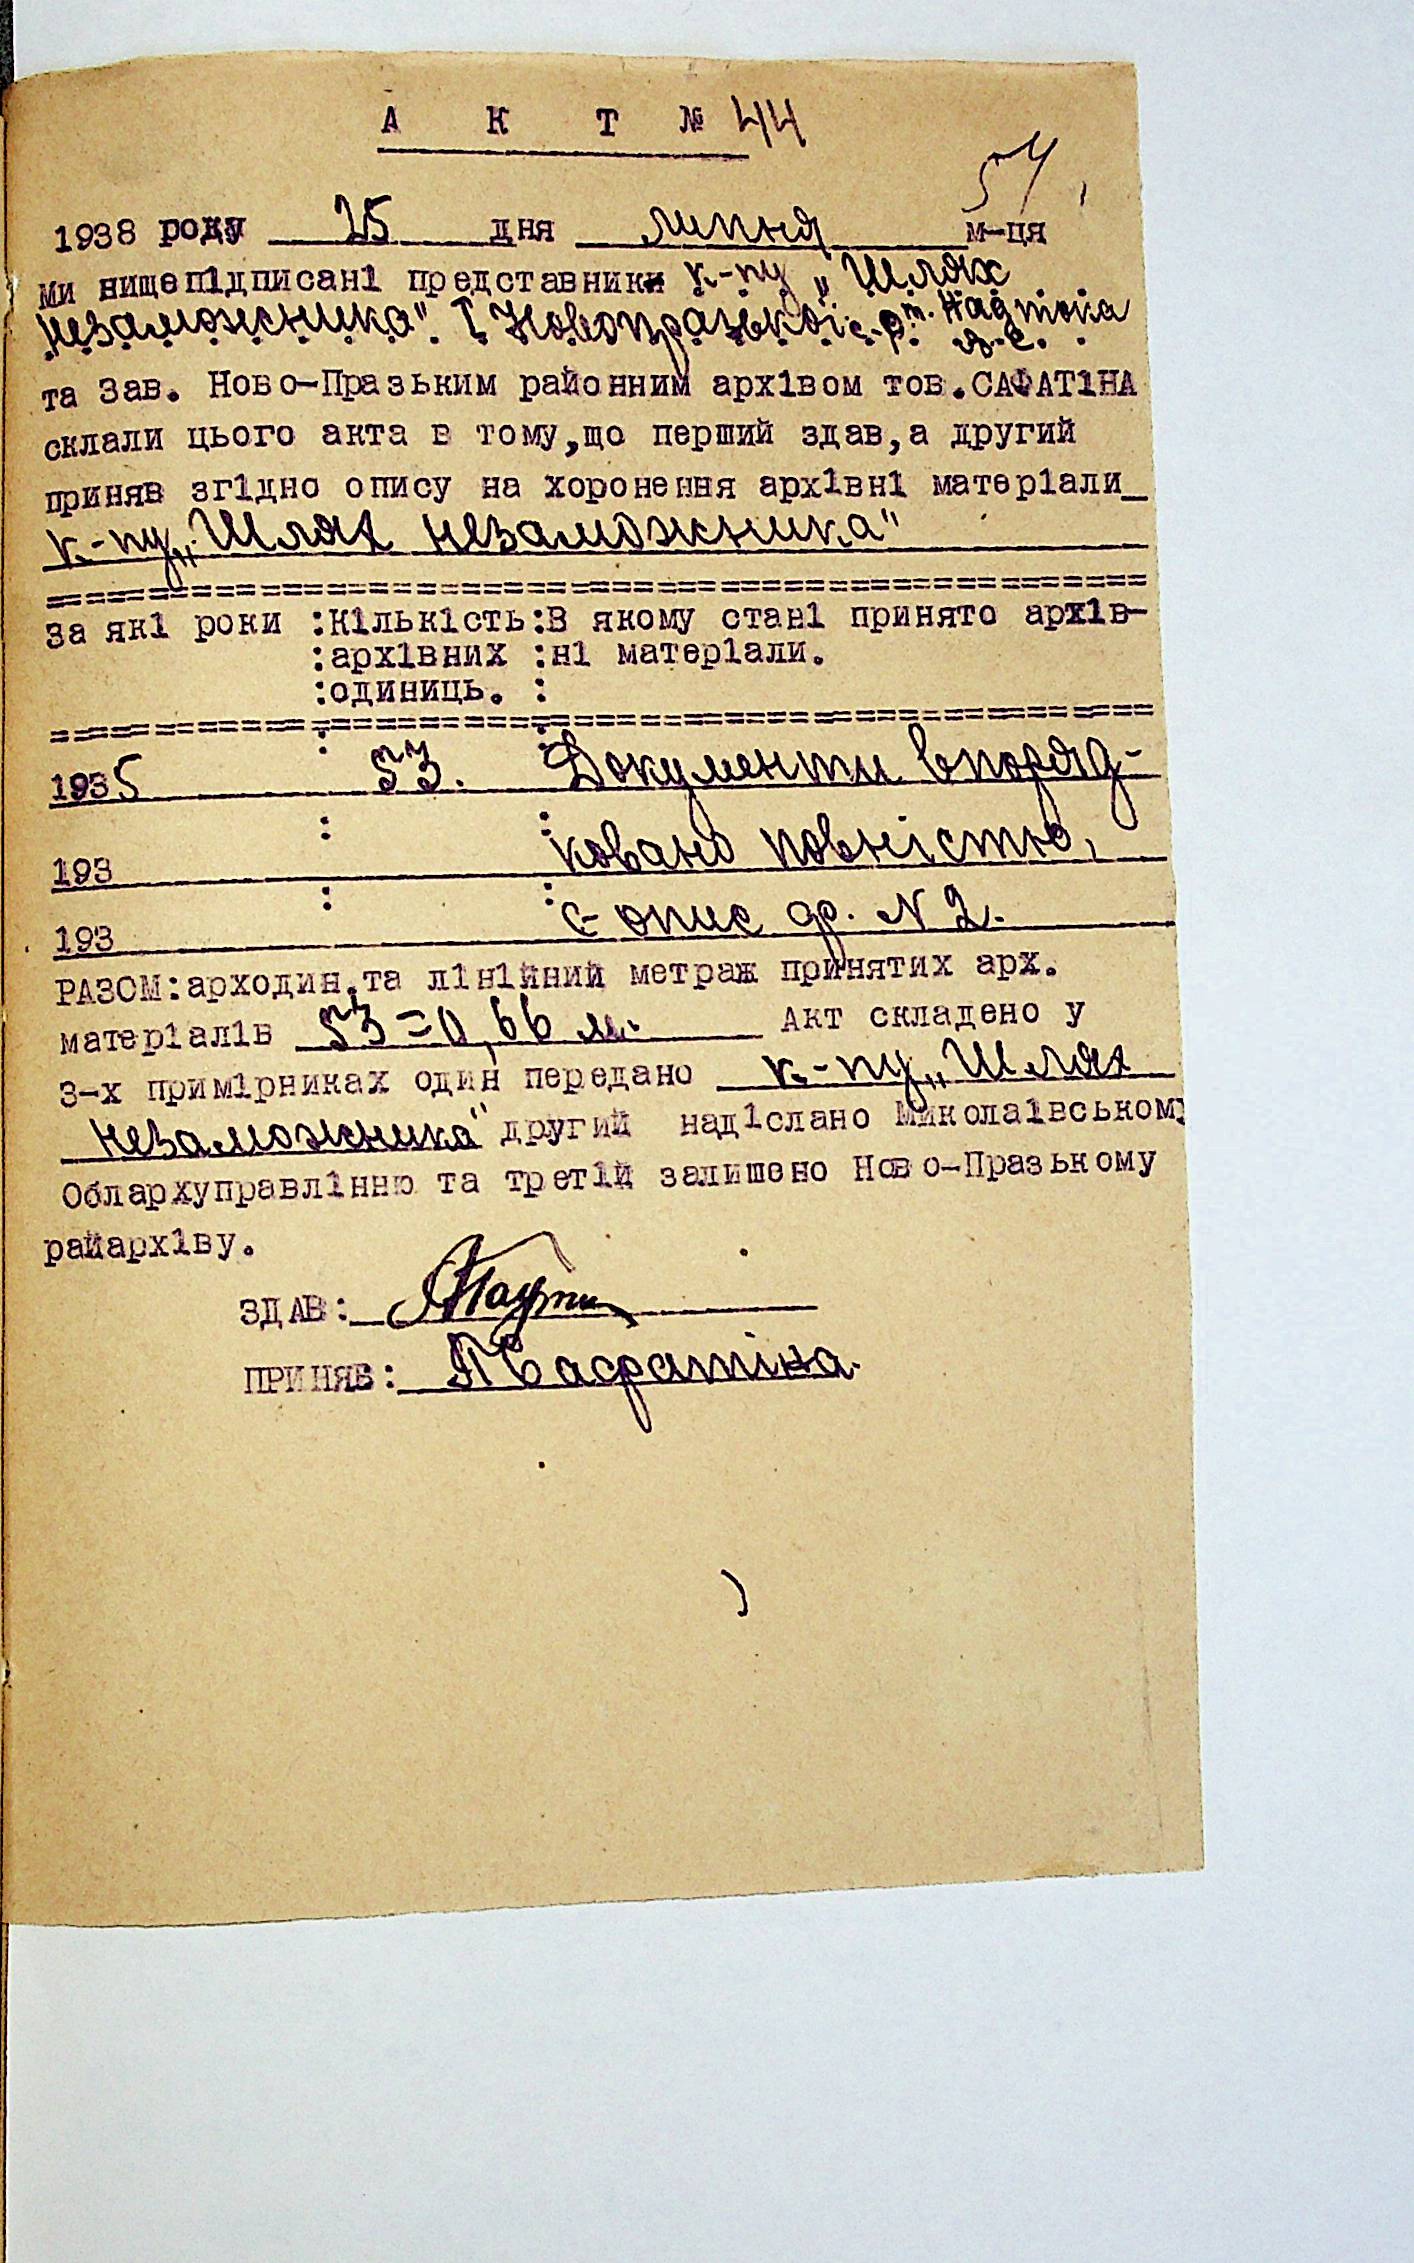 А К Т № 44
54
1938 року 25 дня липня м-ця
ми нищепідписані представники к-пу „Шлях
незаможника". І Новопразької с.р. т. Надтока
та Зав. Ново-Празьким районним архівом тов.САФАТІНА
склали цього акта в тому,що перший здав,а другий
приняв згідно опису на хоронення архівні матеріали
к-пу „Шлях незаможника"
За які роки :Кількість:В якому стані принято архів-
:архівних :ні матеріали.
:одиниць. :
1935 : 53. : Документи впоряд-
193 : : ковано повністю,
193 : : є опис др. N 2.
РАЗОМ:арходин.та лінійний метраж принятих арх.
матеріалів 53=0,66 м. Акт складено у
3-х примірниках один передано к.-пу „Шлях
незаможника" другий надіслано Миколаівському
Облархуправлінню та третій залишено Ново-Празькому
райархіву.
ЗДАВ:
ПРИНЯВ: Сафатіна.